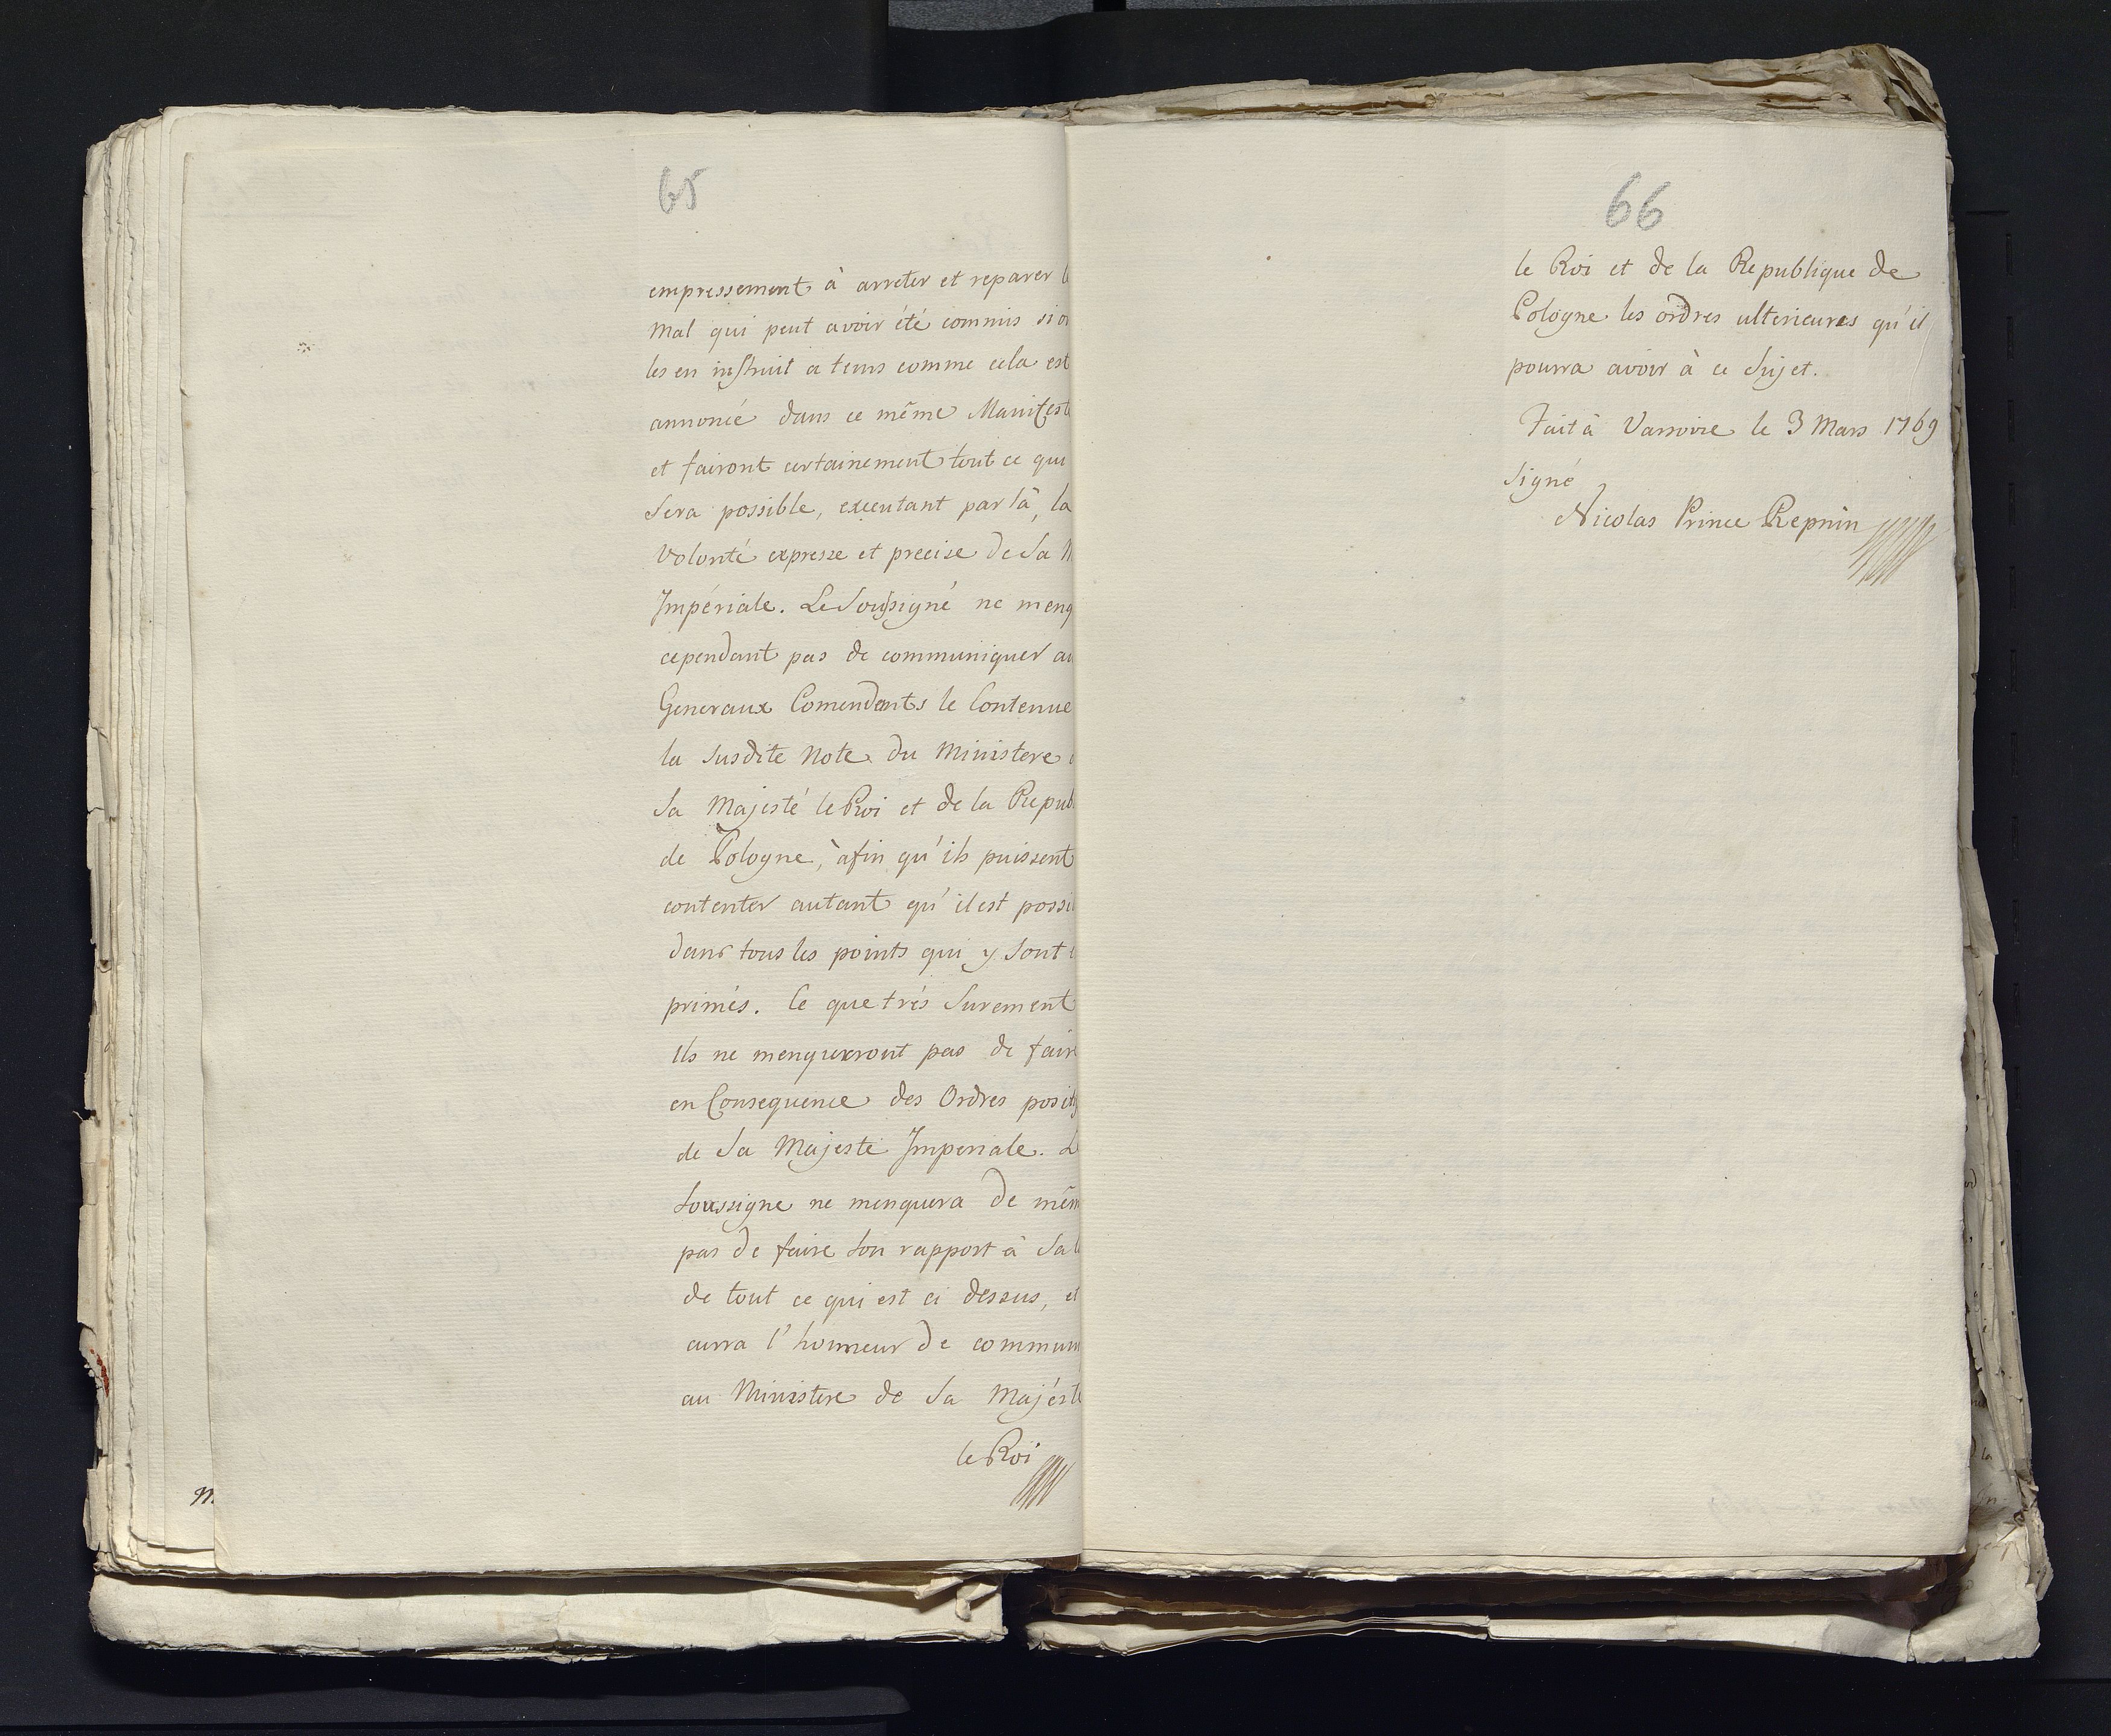 65
empressement à arreter et reparer l
Mal qui peut avoir été commis si o
les en instruit a tems comme cela est
annoncé dans ce même Manifest
et fairont certainement tout ce qui
Sera possible, executant par là, la
Volonté expresse et precise de Sa M
Impériale. Le Soussigné ne menq
cependant pas de communiquer au
Generaux Comendants le Contenue
la Susdite Note du Ministere
Sa Majesté le Roi et de la Repub
de Pologne, àfin qu'ils puissent
contenter autant qu'il est possi
dans tous les points qui y Sont
primés. Ce que trés Surement
Ils ne menqueront pas de fair
en Consequence des Ordres posit
de Sa Majesté Imperiale. L
Soussigne ne menquera de mêm
pas de faire Son rapport à Sa
de tout ce qui est ci dessus, et
aura l'honneur de commun
au Ministere de Sa Majéste
le Roi
M.
66
le Roi et de la Republique de
Pologne les ordres ulterieures qu'il
pourra avoir à ce Sujet.
Fait à Varsovie le 3 Mars 1769
Signé
Nicolas Prince Repnin